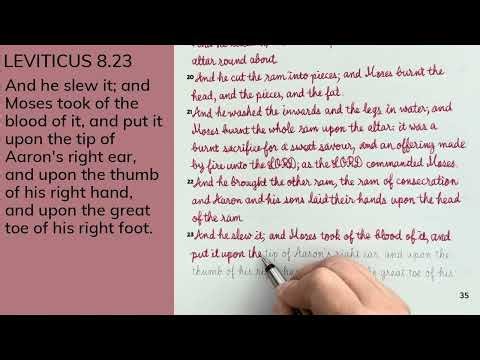 LEVITICUS 8.23
And he slew it; and
Moses took of the
blood of it, and put it
upon the tip of
Aaron's right ear,
and upon the thumb
of his right hand,
and upon the great
toe of his right foot.
altar round about.
20 And he cut the ram into pieces; and Moses burnt the
head, and the pieces, and the fat.
21 And he washed the inwards and the legs in water; and
Moses burnt the whole ram upon the altar: it was a
burnt sacrifice for a sweet savour, and an offering made
by fire unto the LORD; as the LORD commanded Moses.
22 And he brought the other ram, the ram of consecration
and Aaron and his sons laid their hands upon the head
of the ram.
23 And he slew it; and Moses took of the blood of it, and
put it upon the tip of Aaron's right ear, and upon the
thumb of his great toe of his
35